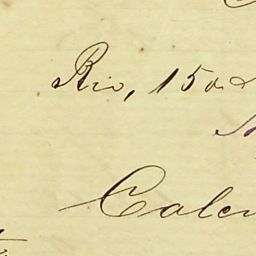 Rio, 15 de
Calcu